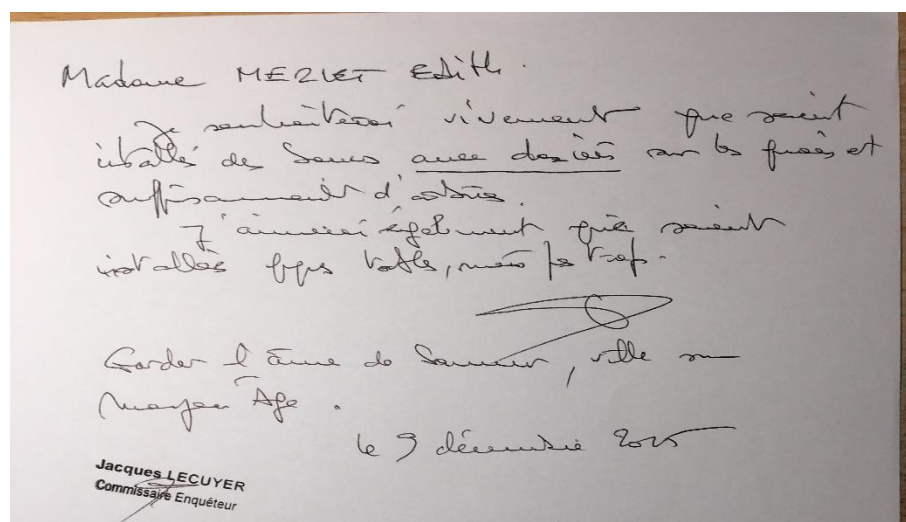 Madame MERLET Edith.
Je souhaiterai vivement que soient
installé des bancs avec dossiers sur les quais et
suffisamment d'arbres.
J'aimerai également que soient
installés qqs tables, mais pas trop.
Garder l'âme de Saumur, ville
moyen Âge.
le 9 décembre 2025
Jacques LECUYER
Commissaire Enquêteur